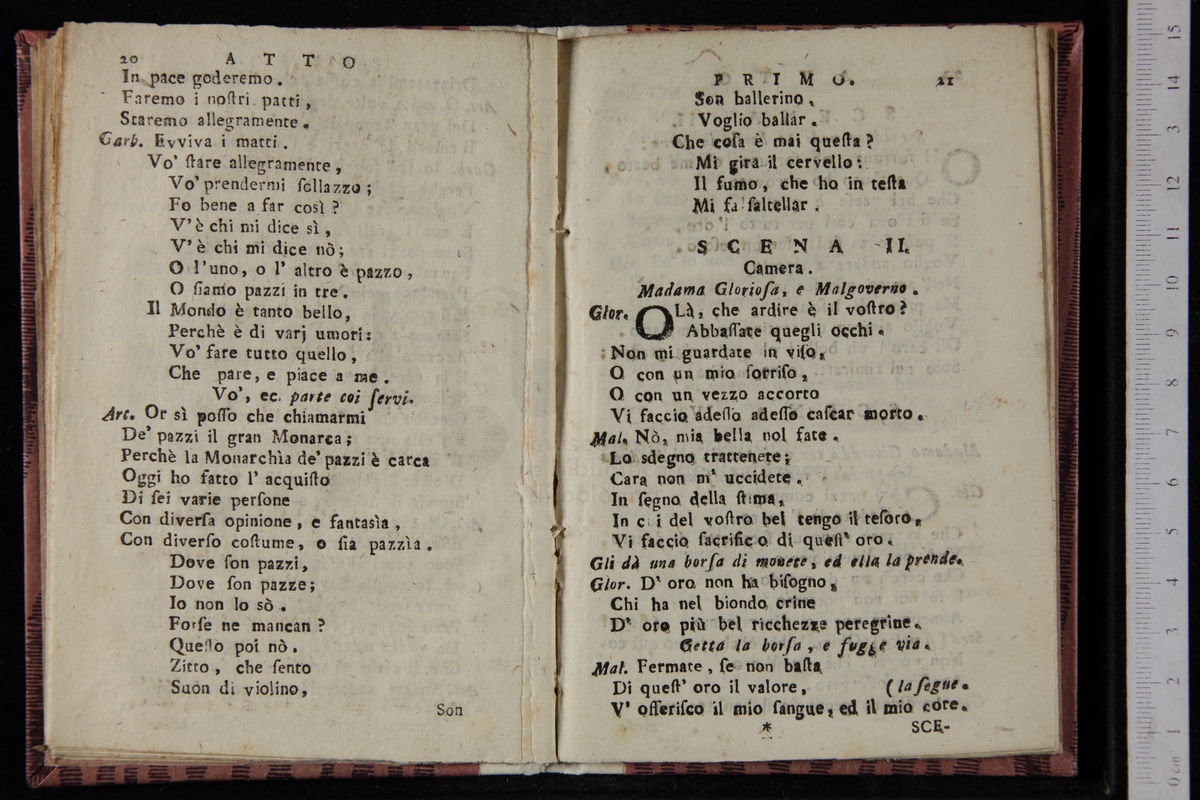 20 ATTO
In pace goderemo.
Faremo i noſtri patti,
Staremo allegramente.
Garb. Evviva i matti.
Vo' ſtare allegramente,
Vo' prendermi ſollazzo;
Fo bene a far così?
V'è chi mi dice sì,
V'è chi mi dice nò;
O l'uno, o l' altro è pazzo,
O ſiamo pazzi in tre.
Il Mondo è tanto bello,
Perchè è di varj umori:
Vo' fare tutto quello,
Che pare, e piace a me.
Vo', ec. parte coi ſervi.
Arc. Or sì poſſo che chiamarmi
De' pazzi il gran Monarca;
Perchè la Monarchìa de' pazzi è carca
Oggi ho fatto l' acquiſto
Di ſei varie perſone
Con diverſa opinione, e fantasìa,
Con diverſo coſtume, o ſia pazzìa.
Dove ſon pazzi,
Dove ſon pazze;
Io non lo sò.
Forſe ne mancan?
Queſto poi nò.
Zitto, che ſento
Suon di violino,
Son
PRIMO. 21
Son ballerino,
Voglio ballar.
Che coſa è mai queſta?
Mi gira il cervello:
Il fumo, che ho in teſta
Mi fa ſaltellar.
SCENA II.
Camera.
Madama Glorioſa, e Malgoverno.
Glor. OLà, che ardire è il voſtro?
Abbaſſate quegli occhi.
Non mi guardate in viſo,
O con un mio ſorriſo,
O con un vezzo accorto
Vi faccio adeſſo adeſſo caſcar morto.
Mal. Nò, mia bella nol fate.
Lo sdegno trattenete;
Cara non m' uccidete.
In ſegno della ſtima,
In c i del voſtro bel tengo il teſoro,
Vi faccio ſacrific o di queſt' oro.
Gli dà una borſa di monete, ed ella la prende.
Glor. D' oro non ha biſogno,
Chi ha nel biondo crine
D' oro più bel ricchezze peregrine.
Getta la borſa, e fugge via.
Mal. Fermate, ſe non baſta
Di queſt' oro il valore, (la ſegue.
V' offeriſco il mio ſangue, ed il mio core.
* SCE-